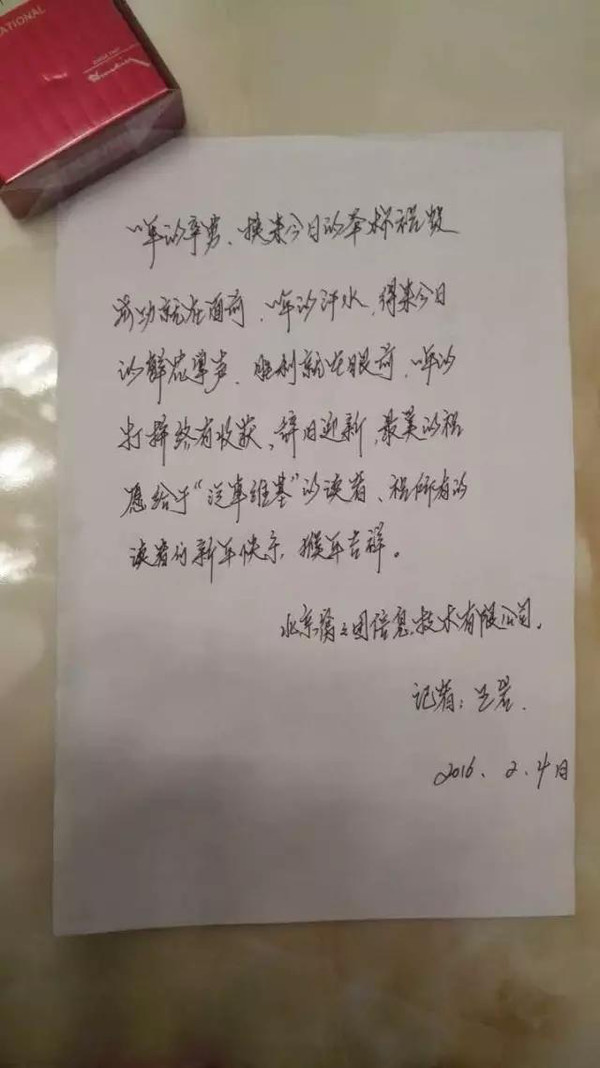 ATIONAL
一年的辛劳、换来今日的举杯祝贺
成功就在面前、一年的汗水、得来今日
的鲜花掌声、胜利就在眼前、一年的
打拼终有收获、辞旧迎新、最美的祝
愿给于“汽车维基”的读者、祝所有的
读者们新年快乐，猴年吉祥。
北京 信息技术有限公司。
记者：兰岩.
2016、2、4日